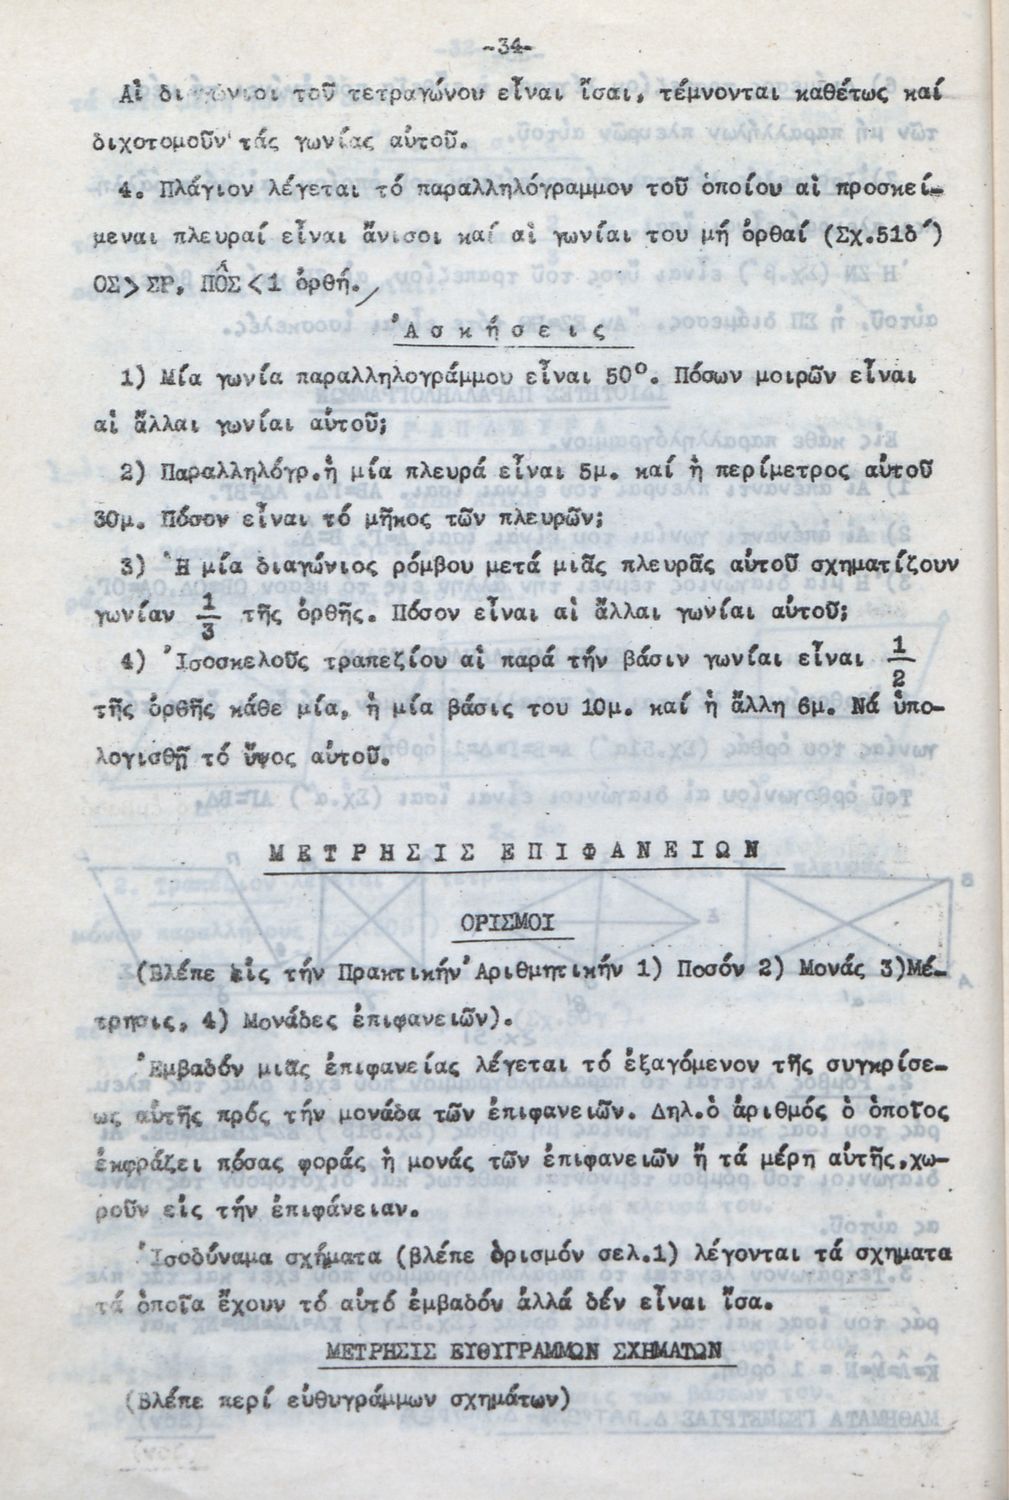 -34-
Αἱ διαγώνιοι τοῦ τετραγώνου εἶναι ἴσαι, τέμνονται καθέτως καί
διχοτομοῦν τάς γωνίας αὐτοῦ.
4. Πλάγιον λέγεται τό παραλληλόγραμμον τοῦ ὁποίου αἱ προσκεί-
μεναι πλευραί εἶναι ἄνισοι καί αἱ γωνίαι του μή ὀρθαί (Σχ.51δ΄)
ΟΣ>ΣΡ, ΠÔΣ<1 ὀρθή.
Ἀσκήσεις
1) Μία γωνία παραλληλογράμμου εἶναι 50°. Πόσων μοιρῶν εἶναι
αἱ ἄλλαι γωνίαι αὐτοῦ;
2) Παραλληλόγρ.ἡ μία πλευρά εἶναι 5μ. καί ἡ περίμετρος αὐτοῦ
30μ. Πόσον εἶναι τό μῆκος τῶν πλευρῶν;
3) Ἡ μία διαγώνιος ρόμβου μετά μιᾶς πλευρᾶς αὐτοῦ σχηματίζουν
γωνίαν 1/3 τῆς ὀρθῆς. Πόσον εἶναι αἱ ἄλλαι γωνίαι αὐτοῦ;
4) Ἰσοσκελοῦς τραπεζίου αἱ παρά τήν βάσιν γωνίαι εἶναι 1/2
τῆς ὀρθῆς κάθε μία, ἡ μία βάσις του 10μ. καί ἡ ἄλλη 6μ. Νά ὑπο-
λογισθῇ τό ὕψος αὐτοῦ.
ΜΕΤΡΗΣΙΣ ΕΠΙΦΑΝΕΙΩΝ
ΟΡΙΣΜΟΙ
(Βλέπε εἰς τήν Πρακτικήν Ἀριθμητικήν 1) Ποσόν 2) Μονάς 3)Μέ-
τρησις, 4) Μονάδες ἐπιφανειῶν).
Ἐμβαδόν μιᾶς ἐπιφανείας λέγεται τό ἐξαγόμενον τῆς συγκρίσε-
ως αὐτῆς πρός τήν μονάδα τῶν ἐπιφανειῶν. Δηλ.ὁ ἀριθμός ὁ ὁποῖος
ἐκφράζει πόσας φοράς ἡ μονάς τῶν ἐπιφανειῶν ἤ τά μέρη αὐτῆς,χω-
ροῦν εἰς τήν ἐπιφάνειαν.
Ἰσοδύναμα σχήματα (βλέπε ὁρισμόν σελ.1) λέγονται τά σχηματα
τά ὁποῖα ἔχουν τό αὐτό ἐμβαδόν ἀλλά δέν εἶναι ἴσα.
ΜΕΤΡΗΣΙΣ ΕΥΘΥΓΡΑΜΜΩΝ ΣΧΗΜΑΤΩΝ
(Βλέπε περί εὐθυγράμμων σχημάτων)